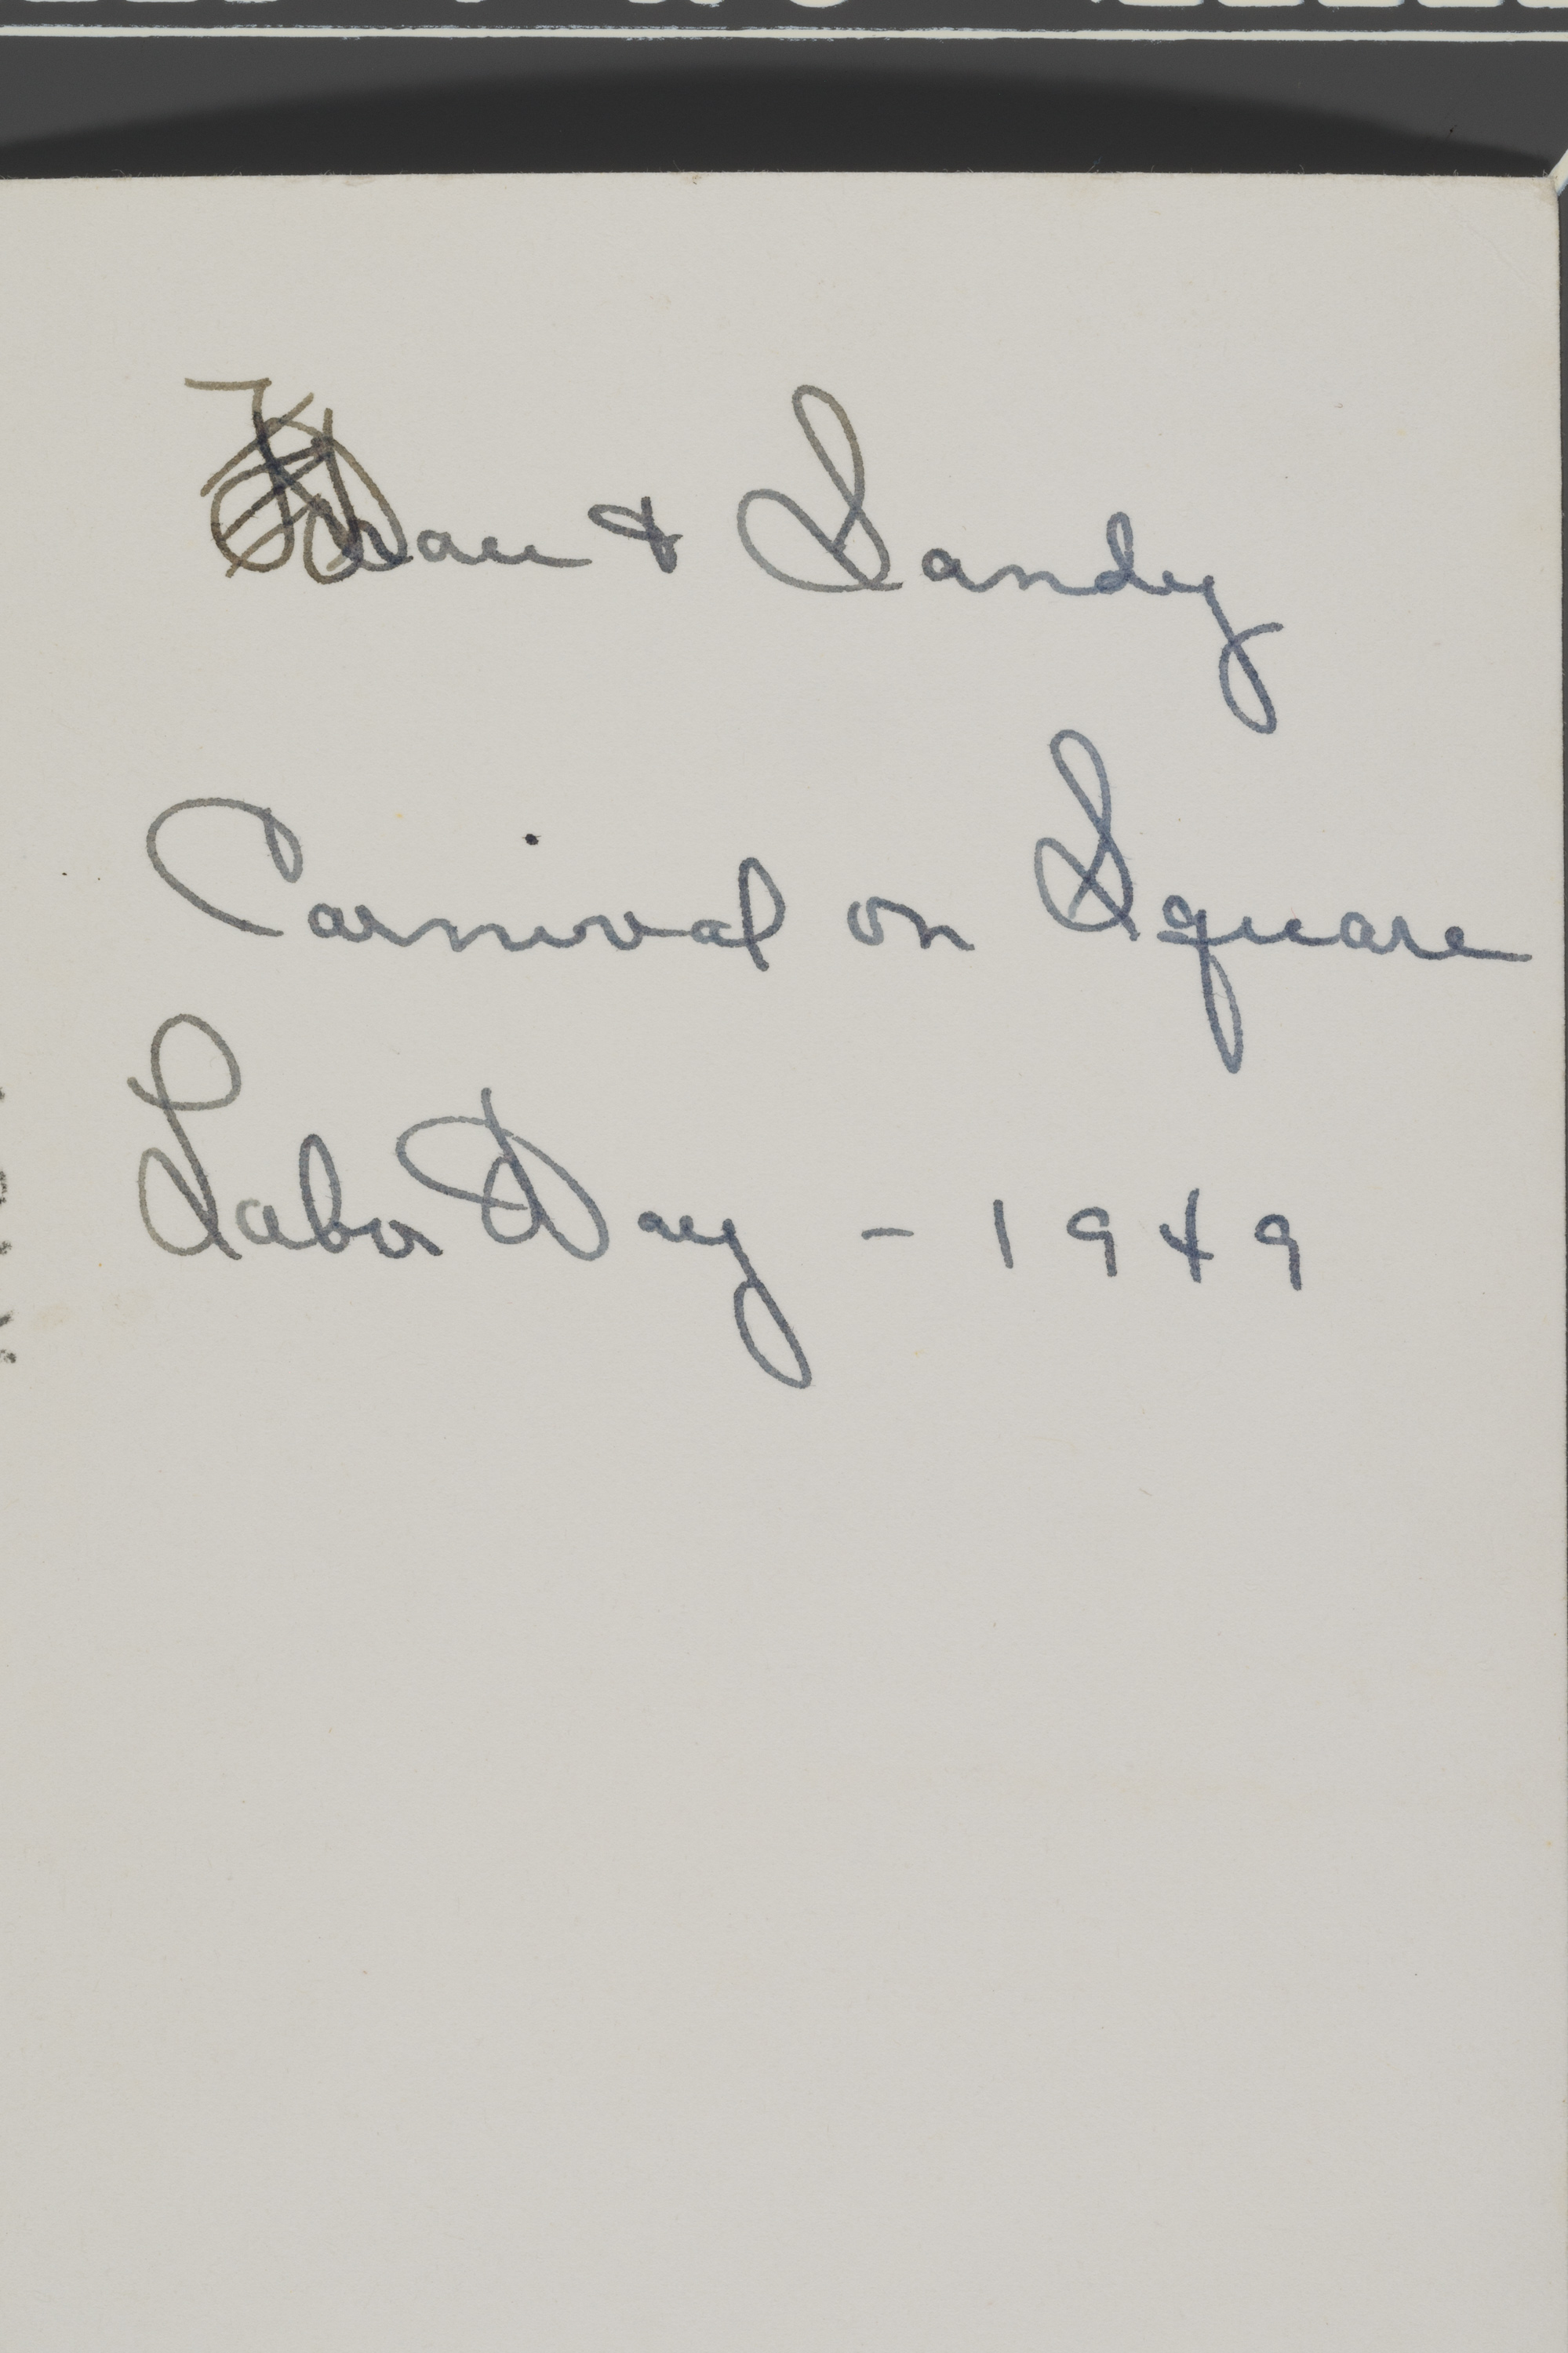 & Sandy
Carnival on Square
Labor Day - 1949